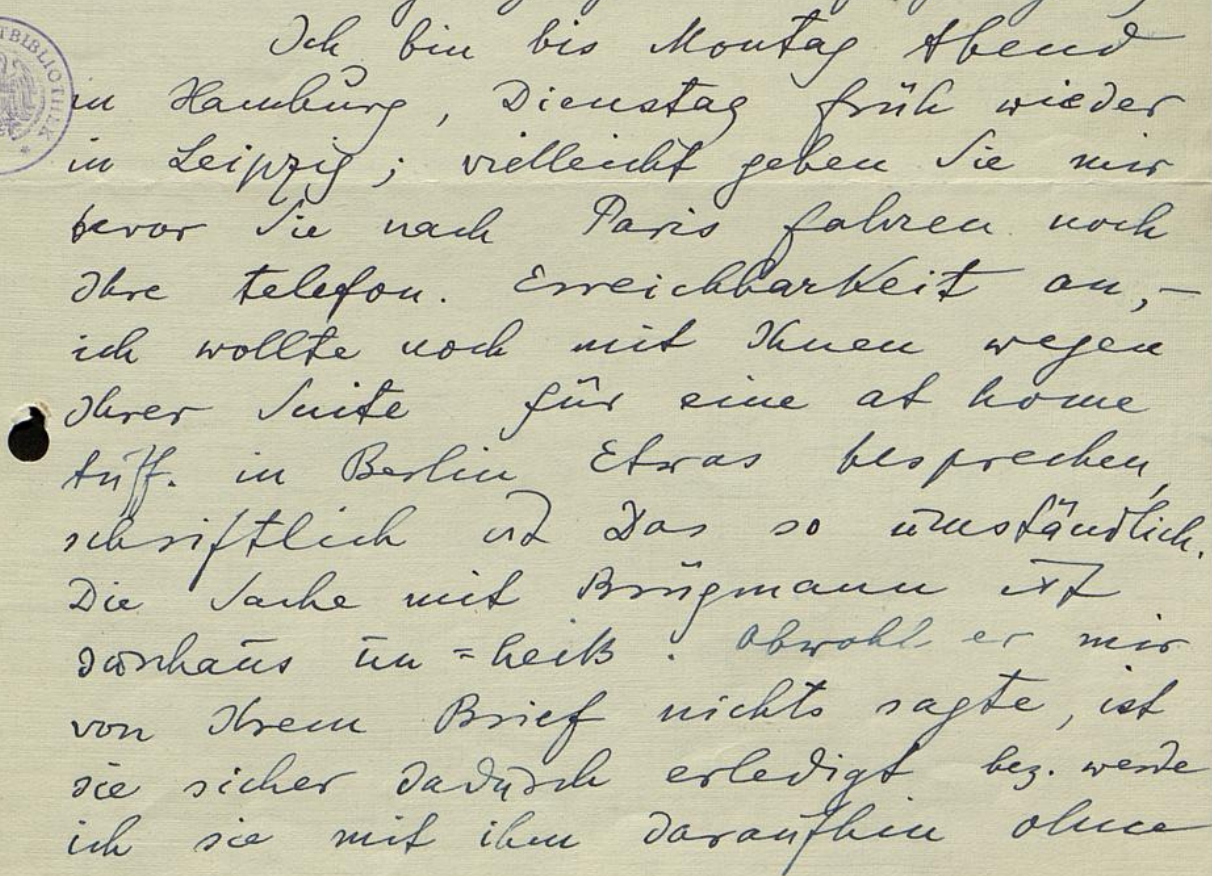 TBIBLIOTHEK
Ich bin bis Montag Abend
in Hamburg, Dienstag früh wieder
in Leipzig; vielleicht geben Sie mir
bevor Sie nach Paris fahren noch
Ihre telefon. Erreichbarkeit an,–
ich wollte noch mit Ihnen wegen
Ihrer Suite für eine at home
Auff. in Berlin Etwas besprechen,
schriftlich ist Das so umständlich.
Die Sache mit Brügmann ist
durchaus un=heiß. Obwohl er mir
von Ihrem Brief nichts sagte, ist
sie sicher dadurch erledigt bez. werde
ich sie mit ihm daraufhin ohne